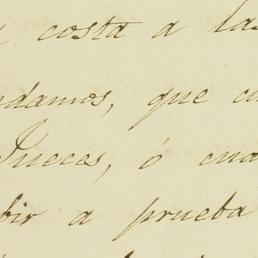 costa a las
damos, que
Jueces, ó
bir a prueba